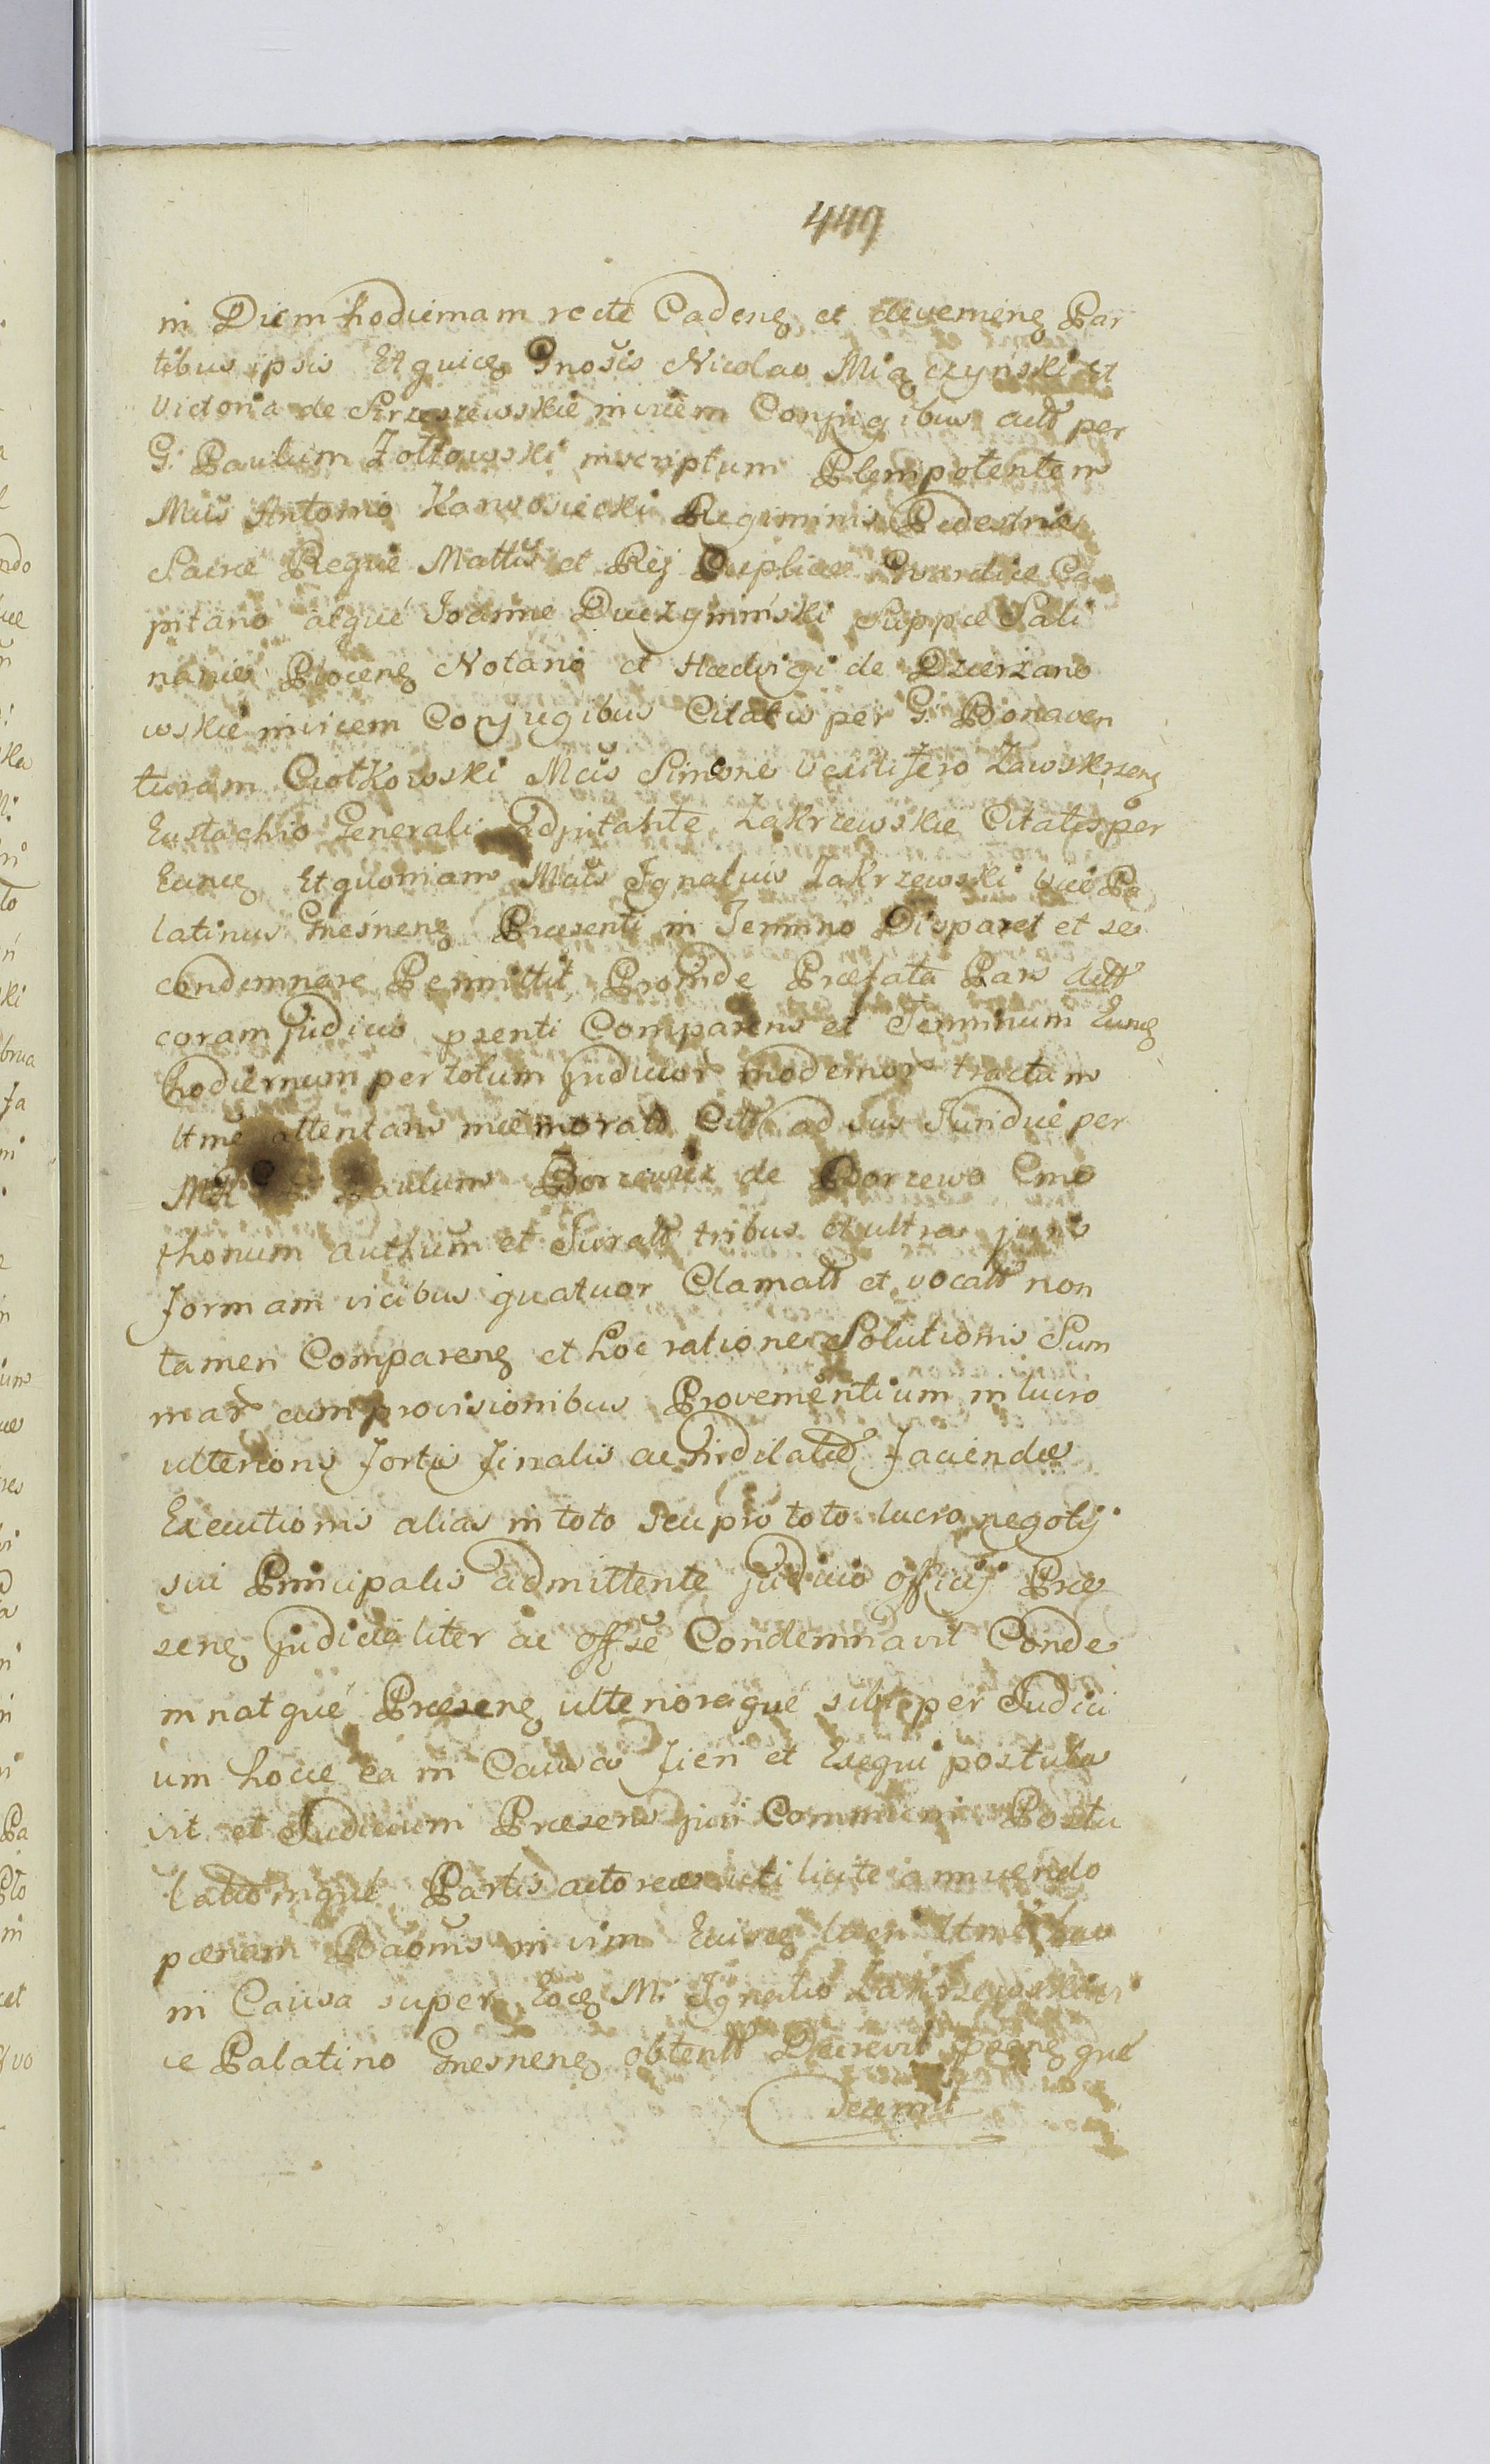 449
in Diem hodiernam recte Cadenz et devenienz Par
tibus ipsis Etquidz Gnosis Nicolao Miączyński et
Victoria de Strzeszewskie invicem Conjugibus actt per
G. Paulum Zołtowski inscriptum Plenipotentem
Mcis Antonio Karwosiecki Regiminis Pedestris
Sacrae Regiae Mattis et Rej Duplicae Gvardiae Ca
pitano atque Joanne Duczyminski Suppae Sali
nariae Plocenz Notario et Haedvigi de Dzierzano
wskie invicem Conjugibus Citatis per G. Bonaven
turam Ciołkowski Mcis Simone Vexillifero Zawskrzenz
Eustachio Generali Adjutante Zakrzewskie Citatis per
Eundz Etquoniam Mcus Ignatius Zakrzewski Vice Pa
latinus Gnesnenz Praesenti in Termino Disparet et se
condemnare Permittit Proinde Praefata Pars actt
coram Judicio psenti Comparens et Terminum Eundz
hodiernum per totum Judicior modernor tractum
ltme attentans memoratt Citt ad sus Juridice per
Paulum Borzewicz de Borzewo Cme
thonum authum et Juratt tribus et ultra juris
formam vicibus quatuor Clamatt et vocatt non
tamen Comparenz et hoc ratione Solutionis Sum
mar cum provisionibus Provenientium in lucro
ulterioris fortis finalis ac indilatae faciendae
Executionis alias in toto seu pro toto lucro negotij
sui Principalis admittente Judicio officij Prae
senz Judicialiter ac offse Condemnavit Conde
mnatque Praesenz ulterioraque sibi per Judici
um hocce ea in Causa fieri et Exequi postula
vit et Judicium Praesens juri Communi Postu
lationique Partis actoreae uti licite annuendo
paenam Baonis in vim Euicz luen ltme hac
in Causa super Eodz M. Ignatio Zakrzewski Vi
ce Palatino Gnesnenz obtentt Decrevit psenz que
decernit